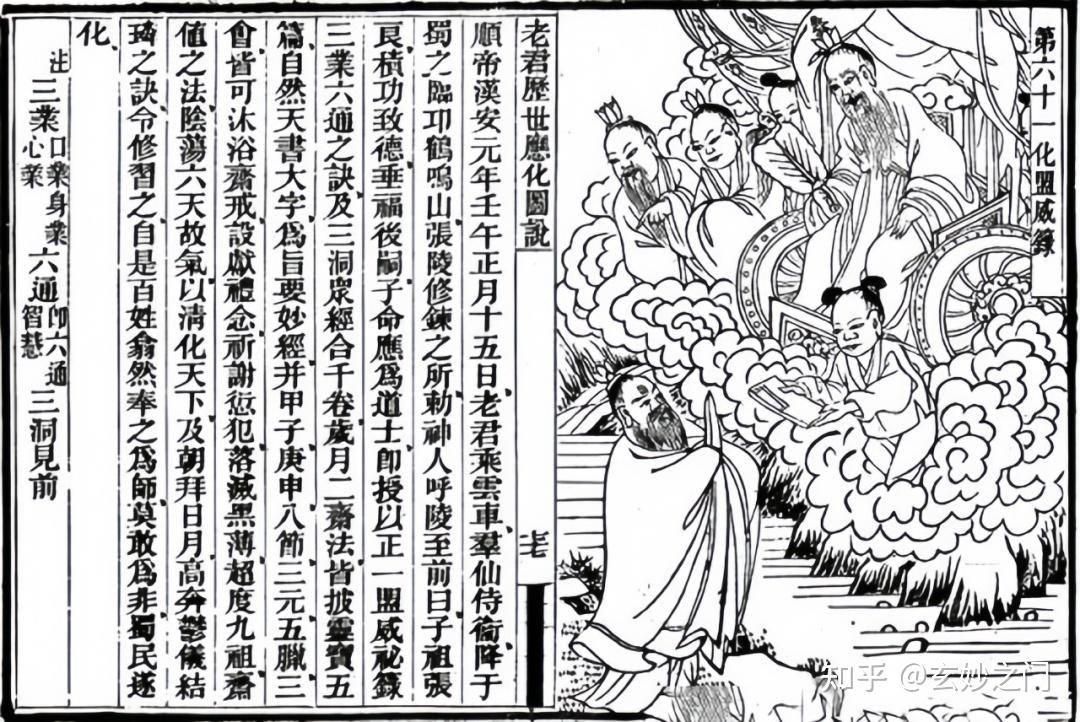 第六十一化盟威籙
老君歷世應化圖說
順帝漢安元年壬午正月十五日、老君乘雲車、羣仙侍衞、降于
蜀之臨邛鶴鳴山、張陵修鍊之所、勅神人呼陵至前曰、子祖張
良積功致德、垂福後嗣、子命應爲道士、卽授以正一盟威祕籙
三業六通之訣、及三洞眾經合千卷、歲月二齋法、皆披靈寶五
篇、自然天書大字、爲旨要妙經、并甲子庚申八節三元五臘三
會、皆可沐浴齋戒、設獻禮念、祈謝愆犯、落滅黑薄、超度九祖、齋
値之法、陰蕩六天故氣、以淸化天下、及朝拜日月、高奔鬱儀結
璘之訣、令修習之、自是百姓翕然奉之爲師、莫敢爲非、蜀民遂
化、
注 三業口業身業心業 六通卽六通智慧 三洞見前
知乎 @玄妙之门